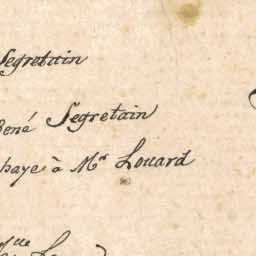 Segretain
René Segretain
haye à Mr Louard